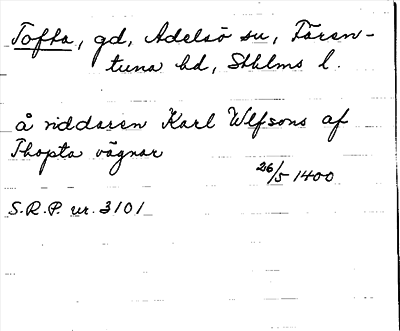 Tofta, gd, Adelsö sn, Fären-
tuna hd, Sthlms l.
å riddaren Karl Ulfsons af
Thopta vägnar
26/5 1400
S.R.P. nr. 3101